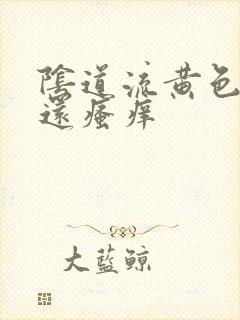 陰道流黃色
還瘙痒
大藍鯨